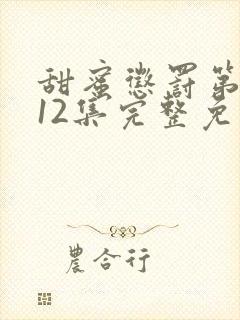 甜蜜懲罰第
12集完整免
農合行